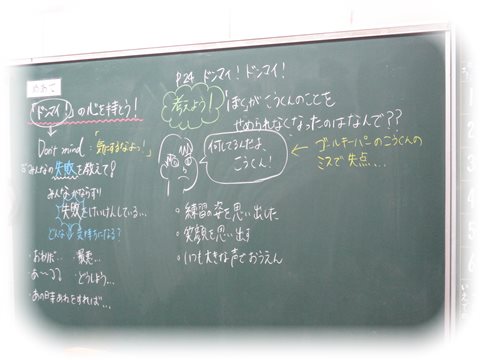 P24 ドンマイ！ドンマイ！
めあて
「ドンマイ！」の心を持とう！
Don't mind：「気にするなよっ！」
みんなの失敗を教えて？
みんなかならず
失敗をけいけんしている…
どんな気持ちになる？
・おわった…
・最悪…
あ〜
・どうしよう…
・あの日あれをすれば…
考えよう！
ぼくがこうくんのことを
せめられなくなったのはなんで？？
何してるんだよ、
こうくん！
← ゴールキーパーのこうくんの
ミスで失点…
・練習の姿を思い出した
・笑顔を思い出す
・いつも大きな声でおうえん